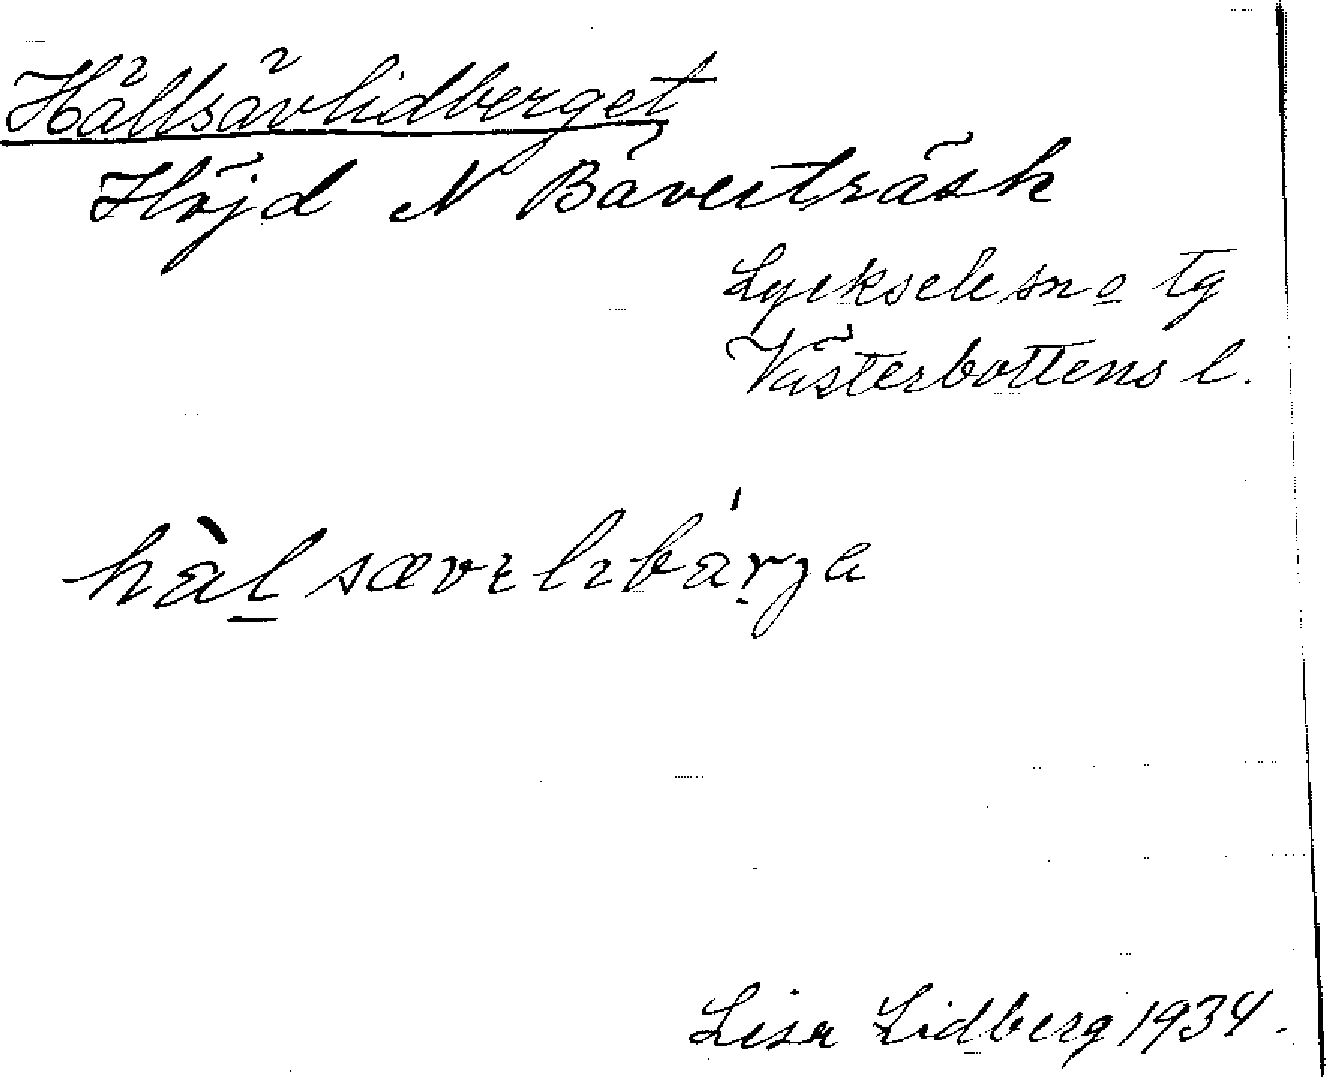 Hällsävlidberget
Höjd N Bäverträsk
Lycksele sn o tg
Västerbottens l.
hàl sævɛlɩbárga
Lisa Lidberg 1934.